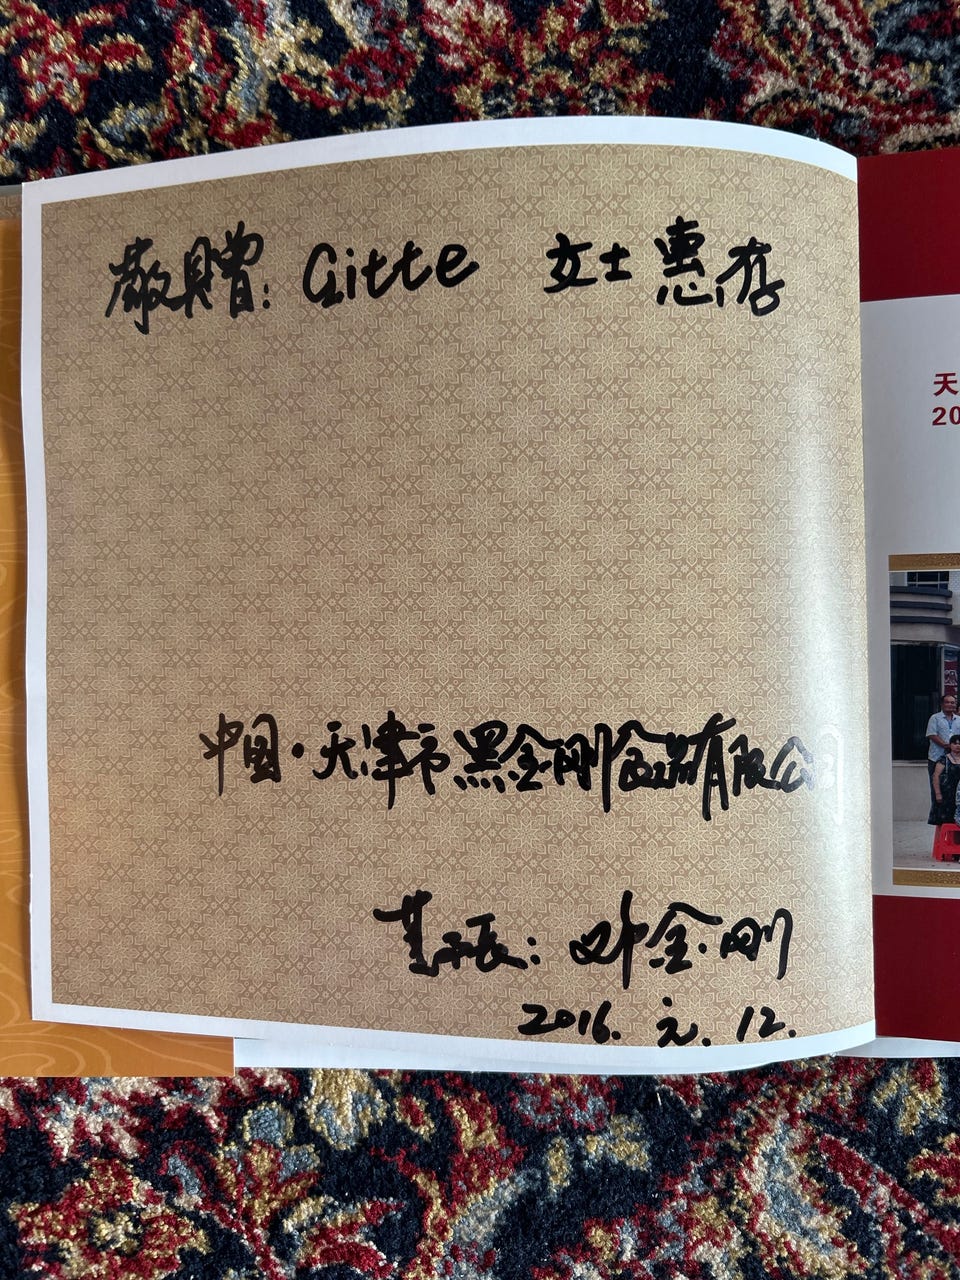 敬贈: Gitte 女士 惠存
天
20
中国·天津市黑金刚食品有限公司
董事长: 叶金刚
2016. 元. 12.